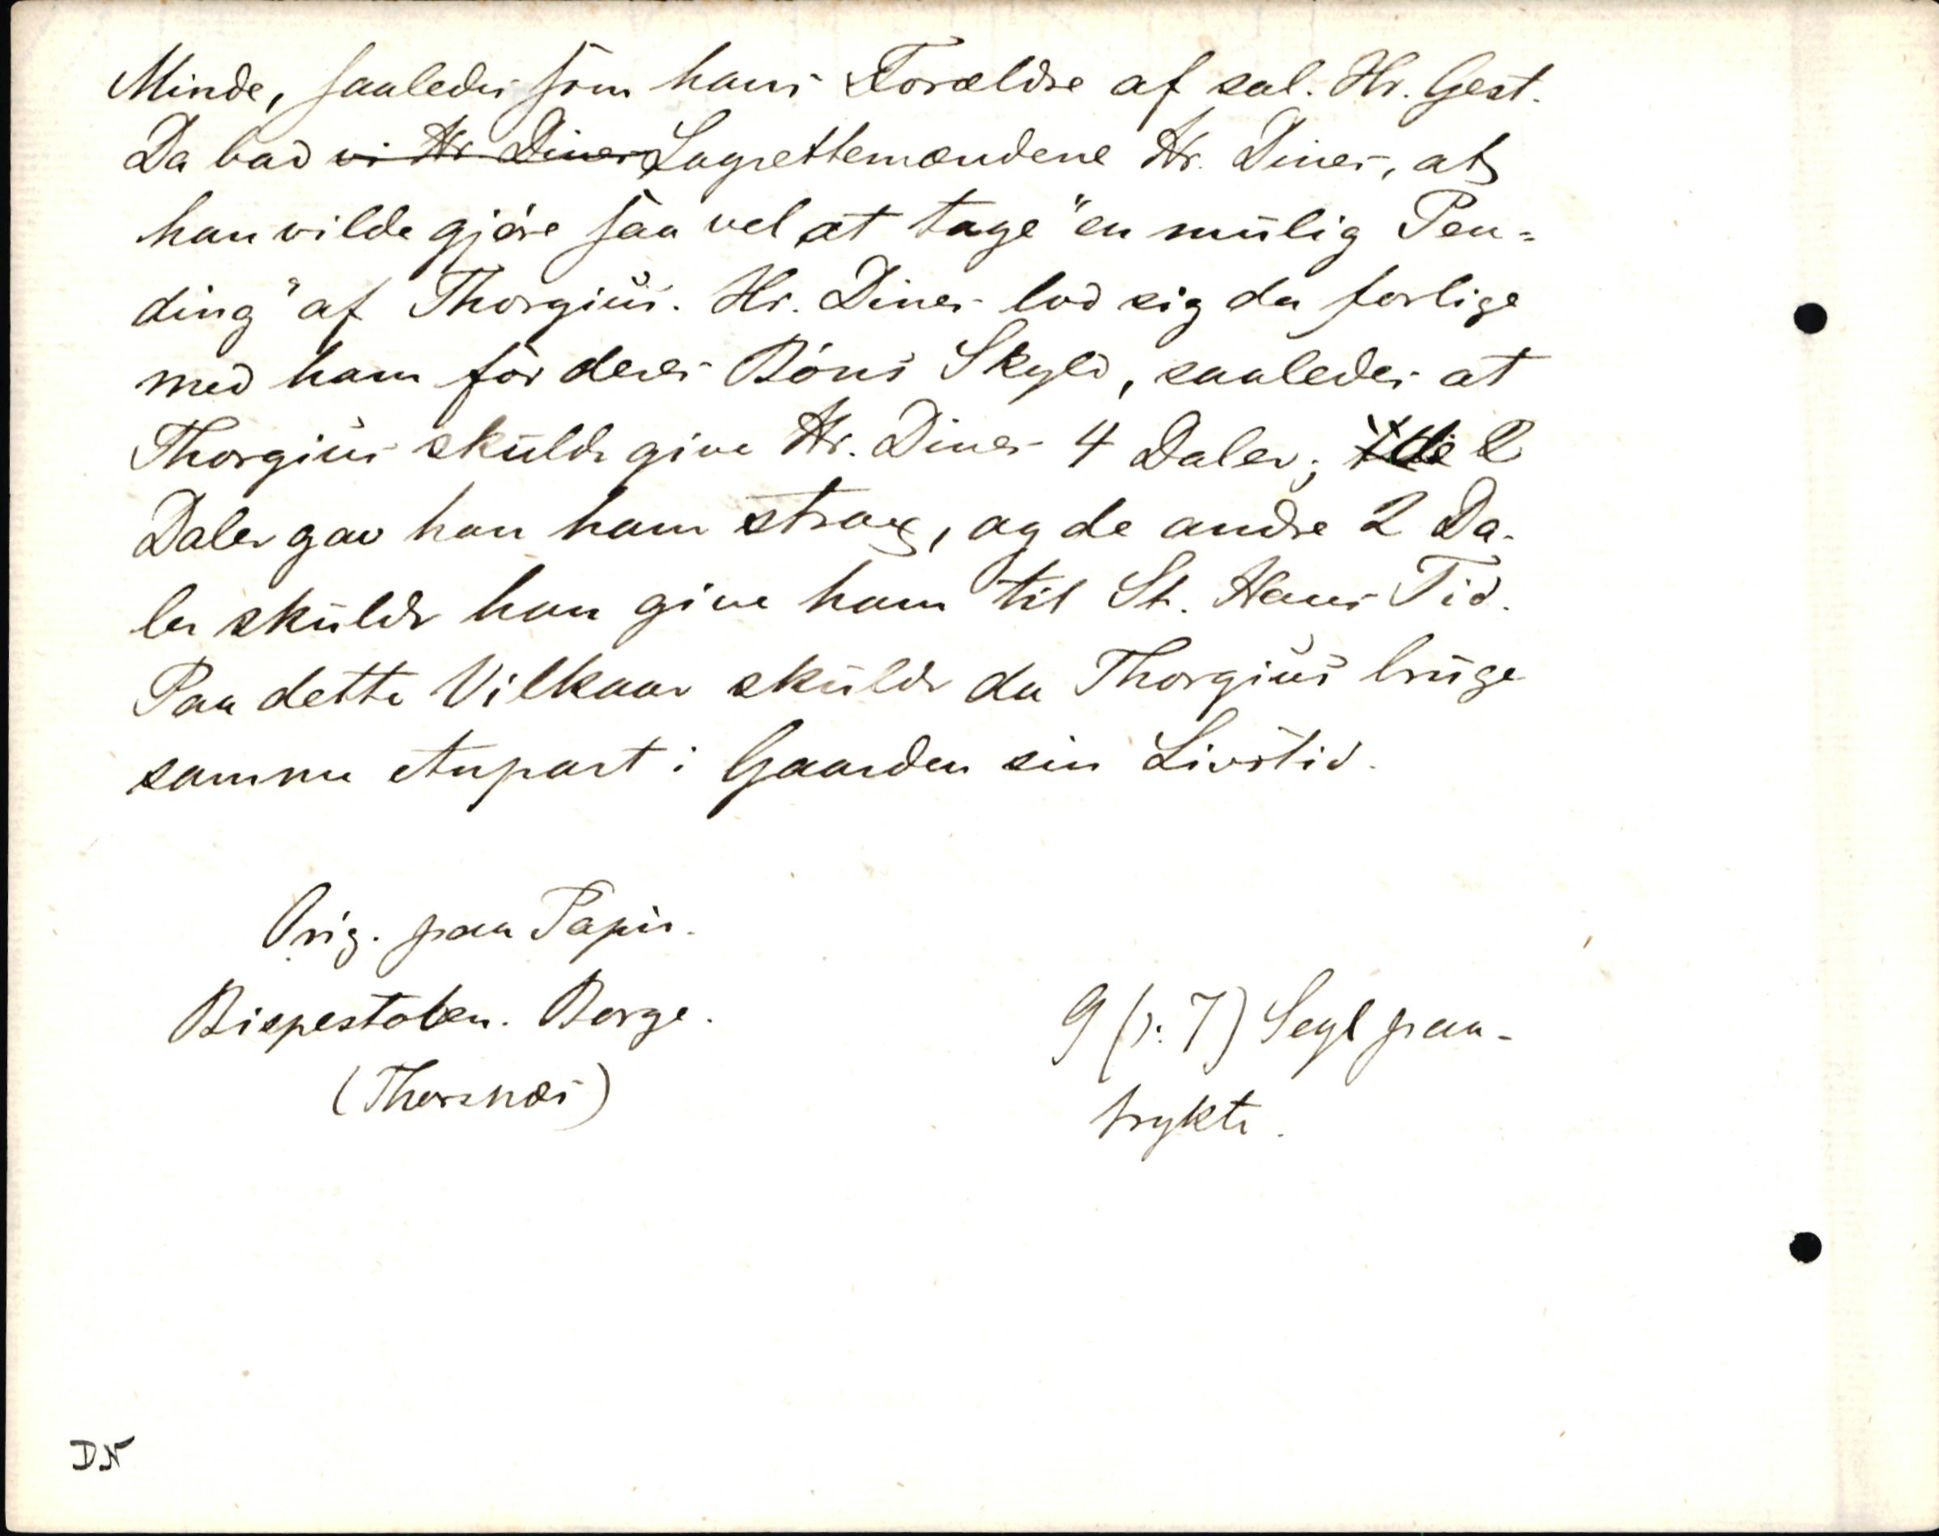 Minde, saaledes som hans Forældre af sal. Hr. Gest.
Da bad vi Hr. Diner Lagrettemændene Hr. Diner, at
han vilde gjøre saa vel at tage "en mulig Pen-
ding" af Thorgius. Hr. Diner lod sig da forlige
med ham for deres Bøns Skyld, saaledes at
Thorgius skulde give Hr. Diner 4 Daler; 2
Daler gav han ham strax, og de andre 2 Da-
ler skulde han give ham til St. Hans Tid.
Paa dette Vilkaar skulde da Thorgius bruge
samme Anpart i Gaarden sin Livstid.
Orig. paa Papir.
Bispestolen. Borge.
(Thorsnæs)
9 (ɔ: 7) Segl paa-
trykte.
DN